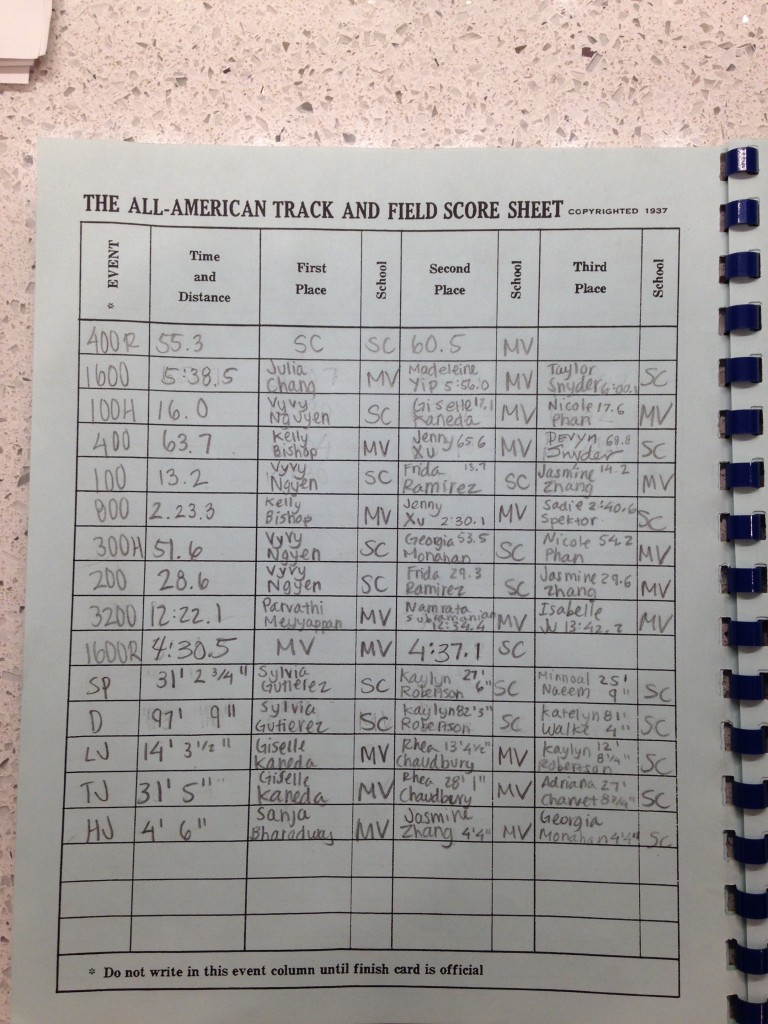 THE ALL-AMERICAN TRACK AND FIELD SCORE SHEET COPYRIGHTED 1937
* EVENT Time and Distance First Place School Second Place School Third Place School
400R 55.3 SC SC 60.5 MV
1600 5:38.5 Julia Chang MV Madeleine Yip 5:56.0 MV Taylor Snyder SC
100H 16.0 Vyvy Nguyen SC Giselle 17.1 Kaneda MV Nicole 17.6 Phan MV
400 63.7 Kelly Bishop MV Jenny 65.6 Xu MV Devyn 68.8 Snyder SC
100 13.2 Vyvy Ngyen SC Frida 13.7 Ramirez SC Jasmine 14.2 Zhang MV
800 2.23.3 Kelly Bishop MV Jenny Xu 2:30.1 MV Sadie 2:40.6 Spektor SC
300H 51.6 Vyvy Ngyen SC Georgia 53.5 Monahan SC Nicole 54.2 Phan MV
200 28.6 Vyvy Ngyen SC Frida 29.3 Ramirez SC Jasmine 29.6 Zhang MV
3200 12:22.1 Parvathi Meyyappan MV Namrata Subramanian 12:34.4 MV Isabelle Ju 13:42.2 MV
1600R 4:30.5 MV MV 4:37.1 SC
SP 31' 2 3/4" Sylvia Gutierez SC Kaylyn 27' Robertson 6" SC Minnoal 25' Naeem 9" SC
D 97' 9" Sylvia Gutierez SC Kaylyn 82'3" Robertson SC Katelyn 81' Walke 4" SC
LJ 14' 3 1/2" Giselle Kaneda MV Rhea 13'4 1/2" Chaudbury MV Kaylyn 12' Robertson 8 1/4" SC
TJ 31' 5" Giselle Kaneda MV Rhea 28' 1" Chaudbury MV Adriana 27' Charvet 8 3/4" SC
HJ 4' 6" Sanja Bharadway MV Jasmine Zhang 4'4" MV Georgia Monahan 4'4" SC
* Do not write in this event column until finish card is official